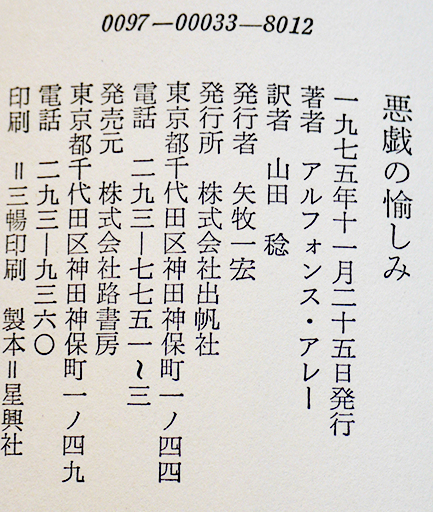 0097-00033-8012
悪戯の愉しみ
一九七五年十一月二十五日発行
著者　アルフォンス・アレー
訳者　山田　稔
発行者　矢牧一宏
発行所　株式会社出帆社
東京都千代田区神田神保町一ノ四四
電話　二九三―七七五一〜三
発売元　株式会社路書房
東京都千代田区神田神保町一ノ四九
電話　二九三―九三六〇
印刷＝三暢印刷　製本＝星興社